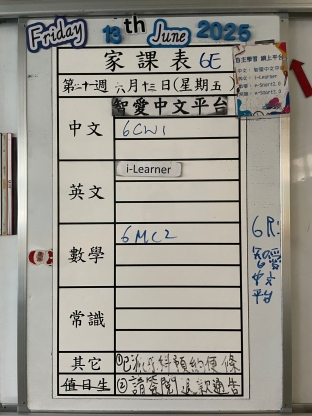 Friday 13th June 2025
家課表 6E
第二十週 六月十三日(星期五)
自主學習 網上平台
智愛中文平台
中文
6CW1
英文
i-Learner
數學
6MC2
常識
6R:
智愛
中文
平台
其它
①已派
預約便條
值日生
②請簽閱退款通告